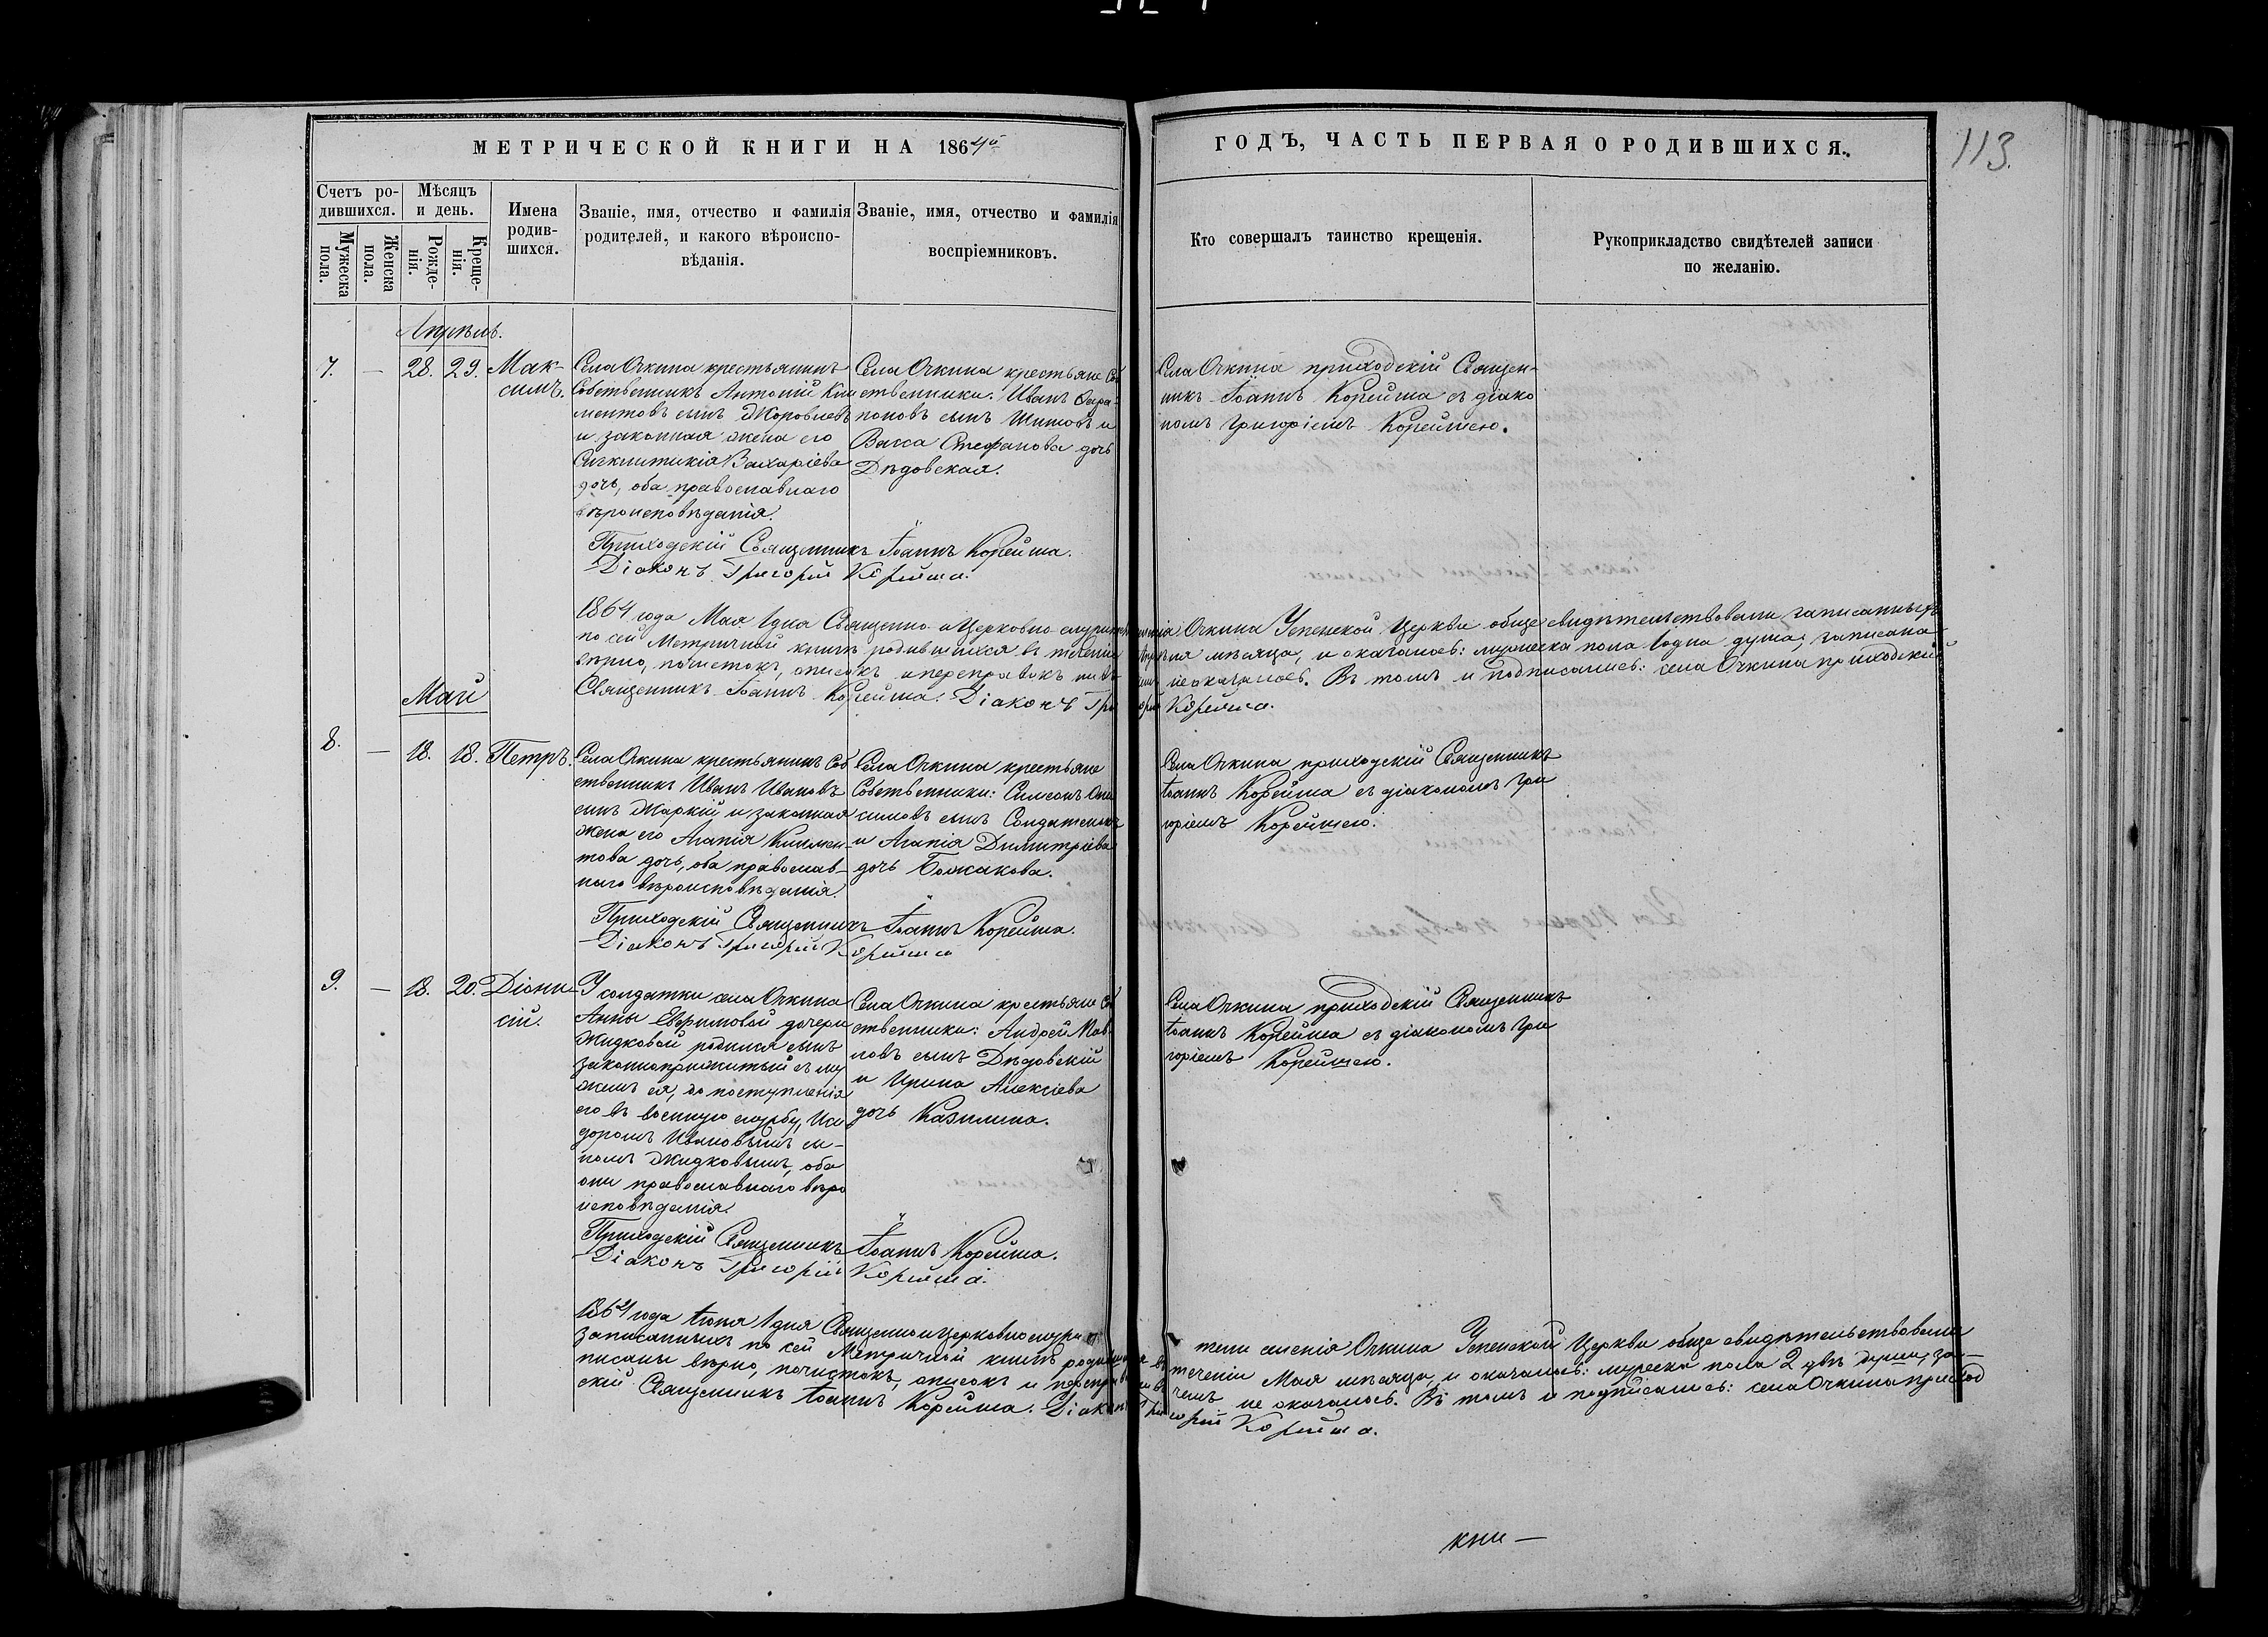 МЕТРИЧЕСКОЙ КНИГИ НА 1864й
ГОДЪ, ЧАСТЬ ПЕРВАЯ О РОДИВШИХСЯ.
113.
Счетъ ро-
дившихся.
Мужеска
пола.
Женска
пола.
Мѣсяцъ
и день.
Рожде-
нія.
Креще-
нія.
Имена
родив-
шихся.
Званіе, имя, отчество и фамилія
родителей, и какого вѣроиспо-
вѣданія.
Званіе, имя, отчество и фамилія
воспріемниковъ.
Кто совершалъ таинство крещенія.
Рукоприкладство свидѣтелей записи
по желанію.
Апрѣль.
7. — 28. 29. Мак-
симъ.
Села Очкина крестьянинъ
Собственникъ Антоній Кли
ментовъ сынъ Жоровлевъ
и законная жена его
Сигклитикія Захаріева
дочь, оба православнаго
вѣроисповѣданія.
Села Очкина крестьяне Соб
ственники: Иванъ Сера-
піоновъ сынъ Шитовъ и
Васса Стефанова дочь
Дѣдовская.
Села Очкина приходскій Священ-
никъ Іоаннъ Корейша съ діако
номъ Григоріемъ Корейшею.
Приходскій Священникъ Іоаннъ Корейша.
Діаконъ Григорій Корейша.
1864 года Мая 1 дня Священно и Церковно служители селенія Очкина Успенской Церкви обще свидѣтельствовали записанныхъ
по сей Метричной книгѣ родившихся въ теченіи Апрѣля мѣсяца, и оказалось: мужеска пола 1 одна душа, записана
вѣрно, почистокъ, описокъ и переправокъ ни въ чемъ не оказалось. Въ томъ и подписались: села Очкина приходскій
Священникъ Іоаннъ Корейша. Діаконъ Григорій Корейша.
Май
8. — 18. 18. Петръ.
Села Очкина крестьянинъ Соб
ственникъ Иванъ Ивановъ
сынъ Жаркій и законная
жена его Агапія Климен-
това дочь, оба православ-
наго вѣроисповѣданія.
Села Очкина крестьяне
Собственники: Симеонъ Они
симовъ сынъ Солдатенокъ
и Агапія Димитріева
дочь Божакова.
Села Очкина приходскій Священникъ
Іоаннъ Корейша съ діакономъ Гри
горіемъ Корейшею.
Приходскій Священникъ Іоаннъ Корейша.
Діаконъ Григорій Корейша
9. — 18. 20. Діони-
сій.
У солдатки села Очкина
Анны Евфимовой дочери
Жидковой родился сынъ
законноприжитый съ му
жемъ ея, до поступленія
его въ военную службу, Иси
доромъ Ивановымъ сы-
номъ Жидковымъ, оба
они православнаго вѣро
исповѣданія.
Села Очкина крестьяне Соб
ственники: Андрей Пав-
ловъ сынъ Дѣдовскій
и Ирина Алексіева
дочь Казилина.
Села Очкина приходскій Священникъ
Іоаннъ Корейша съ діакономъ Гри
горіемъ Корейшею.
Приходскій Священникъ Іоаннъ Корейша.
Діаконъ Григорій Корейша.
1864 года Іюня 1 дня Священно и Церковнослужители селенія Очкина Успенской Церкви обще свидѣтельствовали
записанныхъ по сей Метричной книгѣ родившихся въ теченіи Мая мѣсяца, и оказалось: мужеска пола 2 двѣ души, за-
писаны вѣрно, почистокъ, описокъ и переправокъ ни въ чемъ не оказалось. Въ томъ и подписались: села Очкина приход
скій Священникъ Іоаннъ Корейша. Діаконъ Григорій Корейша.
кни—